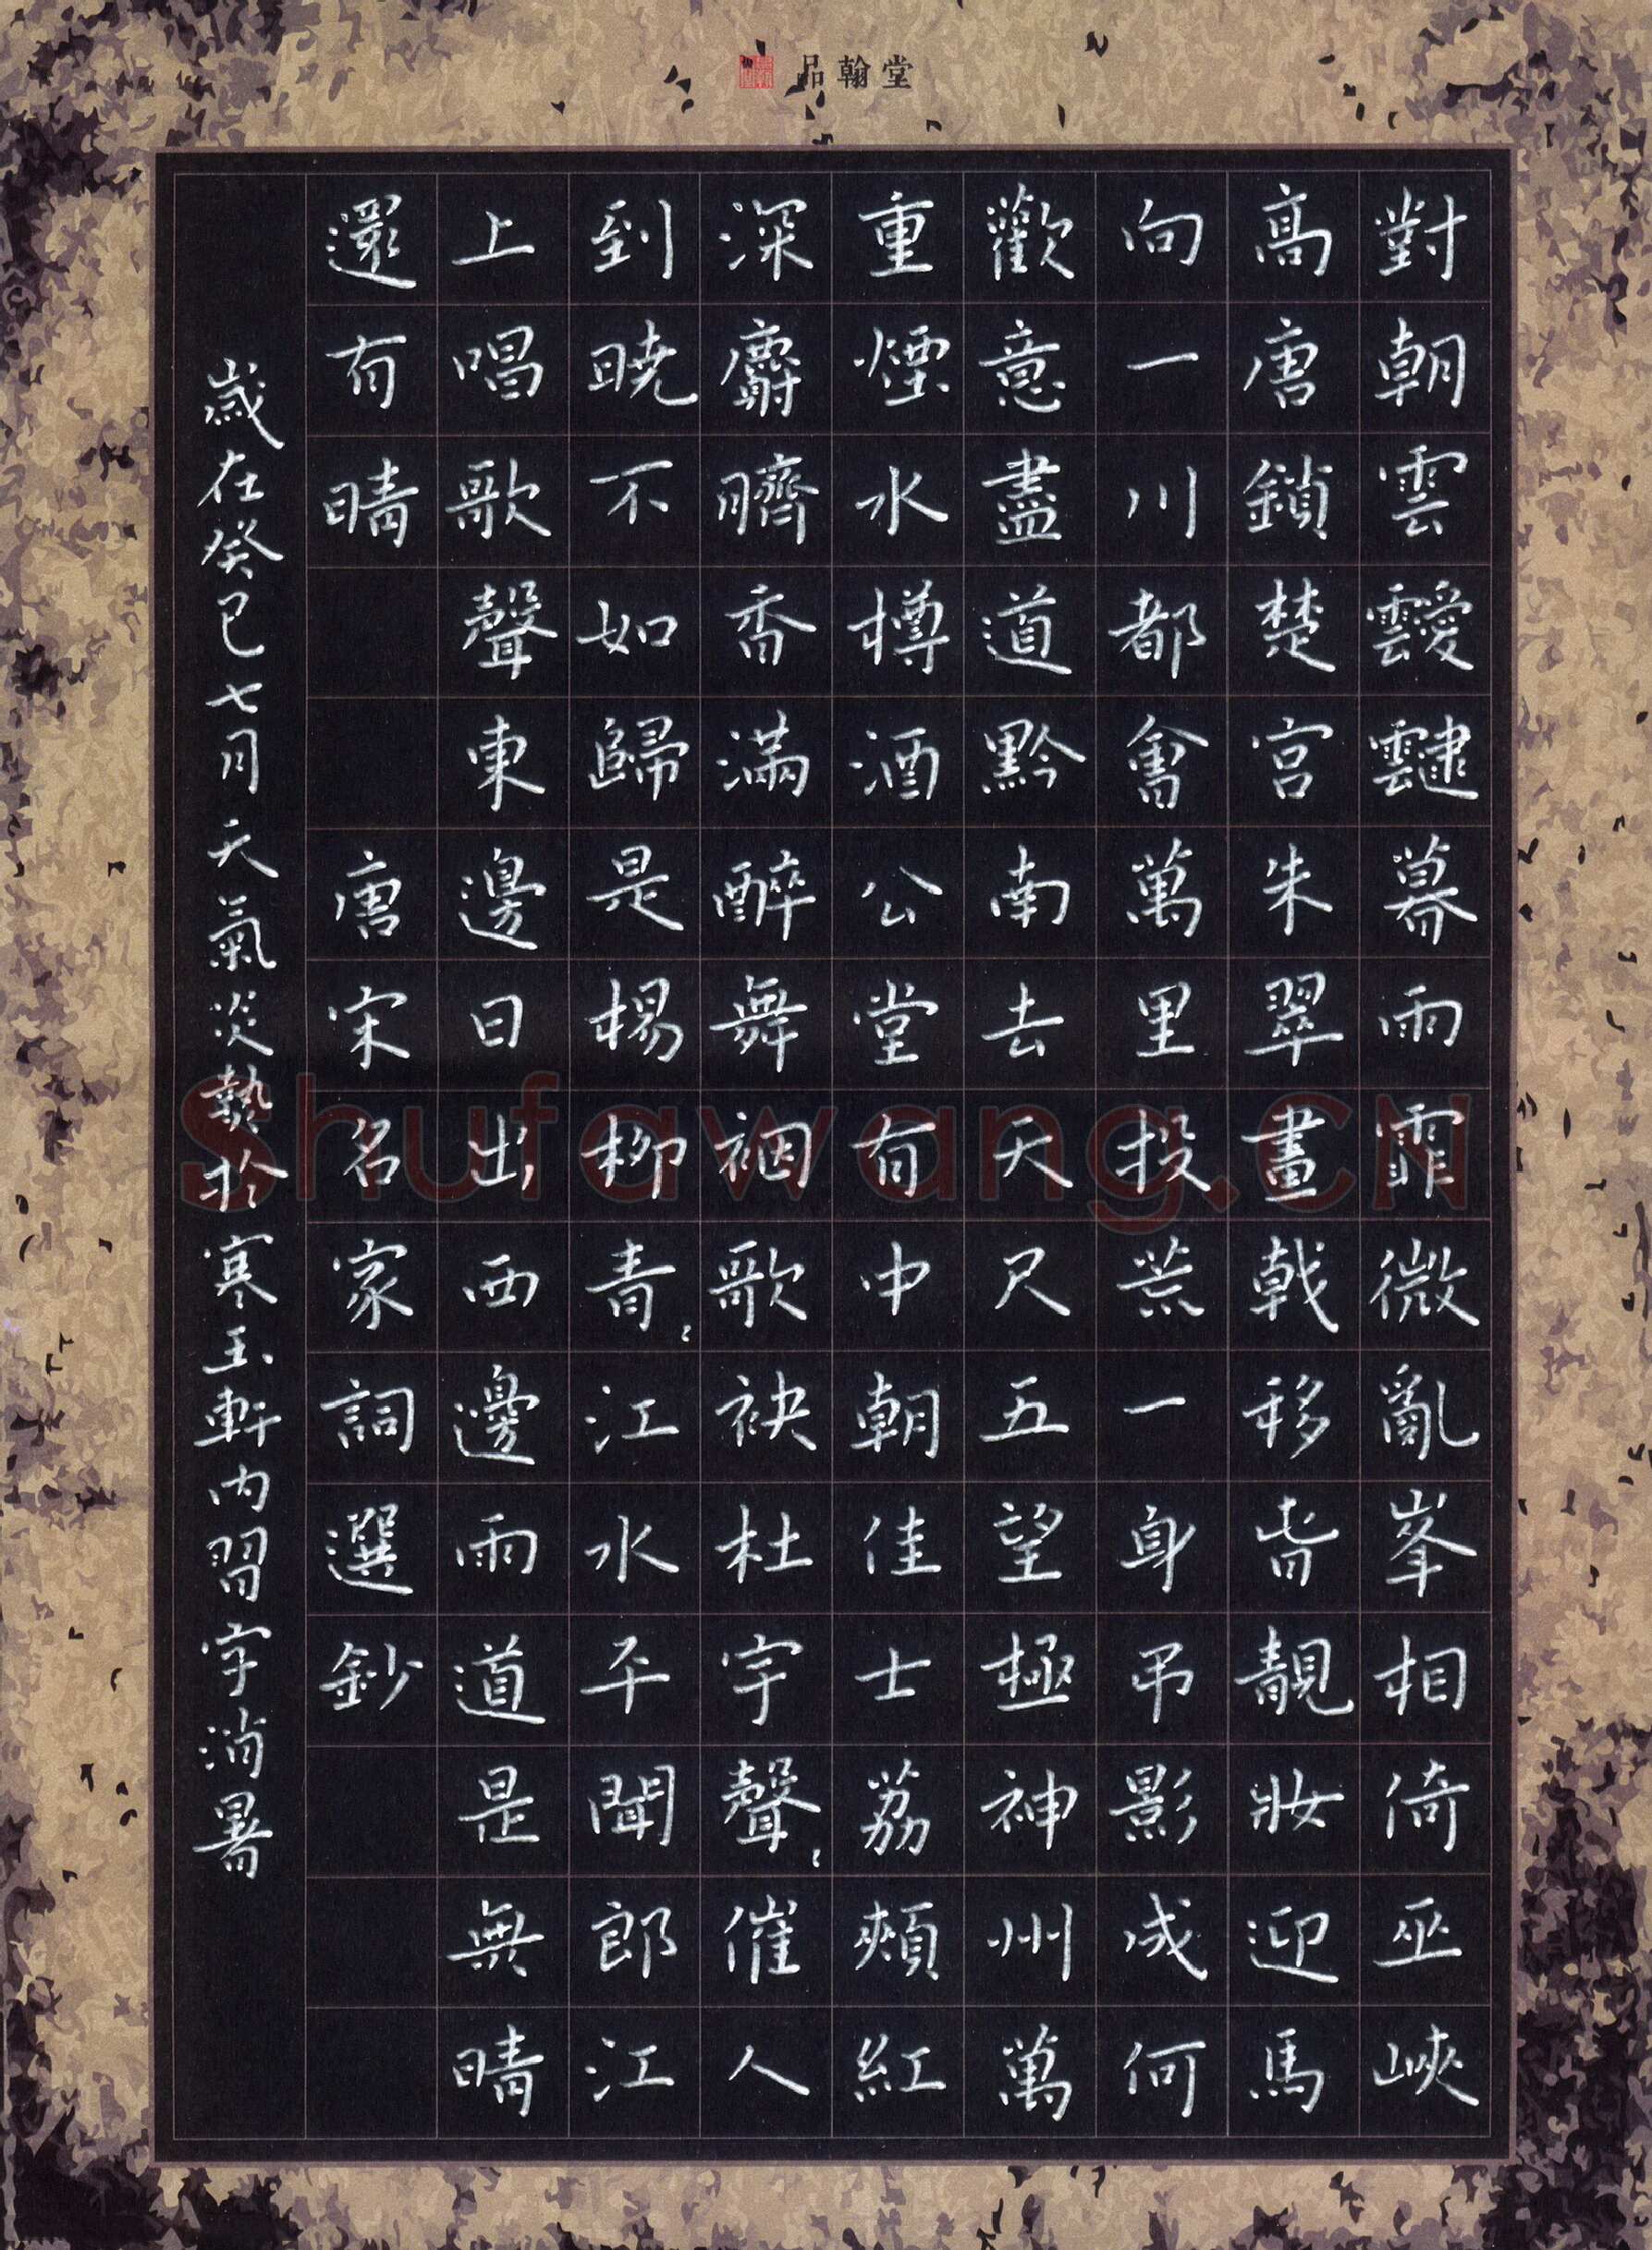 品翰堂
對朝雲靉靆暮雨霏微亂峯相倚巫峽
高唐鎖楚宮朱翠畫戟移春靚妝迎馬
向一川都會萬里投荒一身弔影成何
歡意盡道黔南去天尺五望極神州萬
重煙水樽酒公堂有中朝佳士荔頰紅
深麝臍香滿醉舞裀歌袂杜宇聲〻催人
到曉不如歸是楊柳青〻江水平聞郎江
上唱歌聲東邊日出西邊雨道是無晴
還有晴 唐宋名家詞選鈔
歲在癸巳七月天氣炎熱於寒玉軒內習字消暑
Shufawang.CN